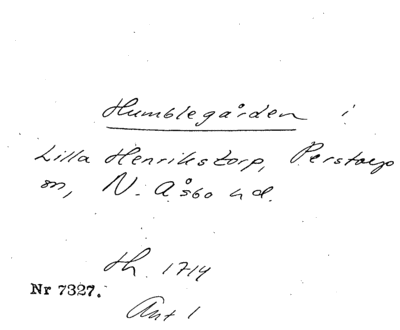 Humblegården i
Lilla Henrikstorp, Perstorp
sn, N. Åsbo hd.
th. 1714
Nr 7327.
Ant 1